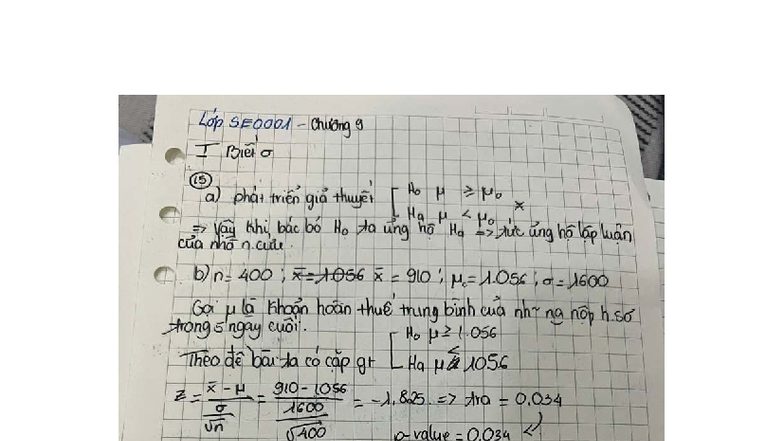 Lớp SE0001 - Chương 9
I Biết σ
(15)
a) phát triển giả thuyết [ H₀ μ ≥ μ₀
Ha μ < μ₀ *
=> Vậy khi bác bỏ H₀ ta ủng hộ Ha => tức ủng hộ lập luận
của nhà n.cứu.
b) n = 400 ; x̄ = 1056 x̄ = 910 ; μ₀ = 1.056 ; σ = 1600
Gọi μ là khoản hoàn thuế trung bình của nh~ng nộp h.sơ
trong 5 ngày cuối.
[ H₀ μ ≥ 1.056
Theo đề bài ta có cặp gt
Ha μ < 1056
z = (x̄ - μ)/(σ/√n) = (910 - 1056)/(1600/√400) = -1,825 => tra = 0.034
p-value = 0.034